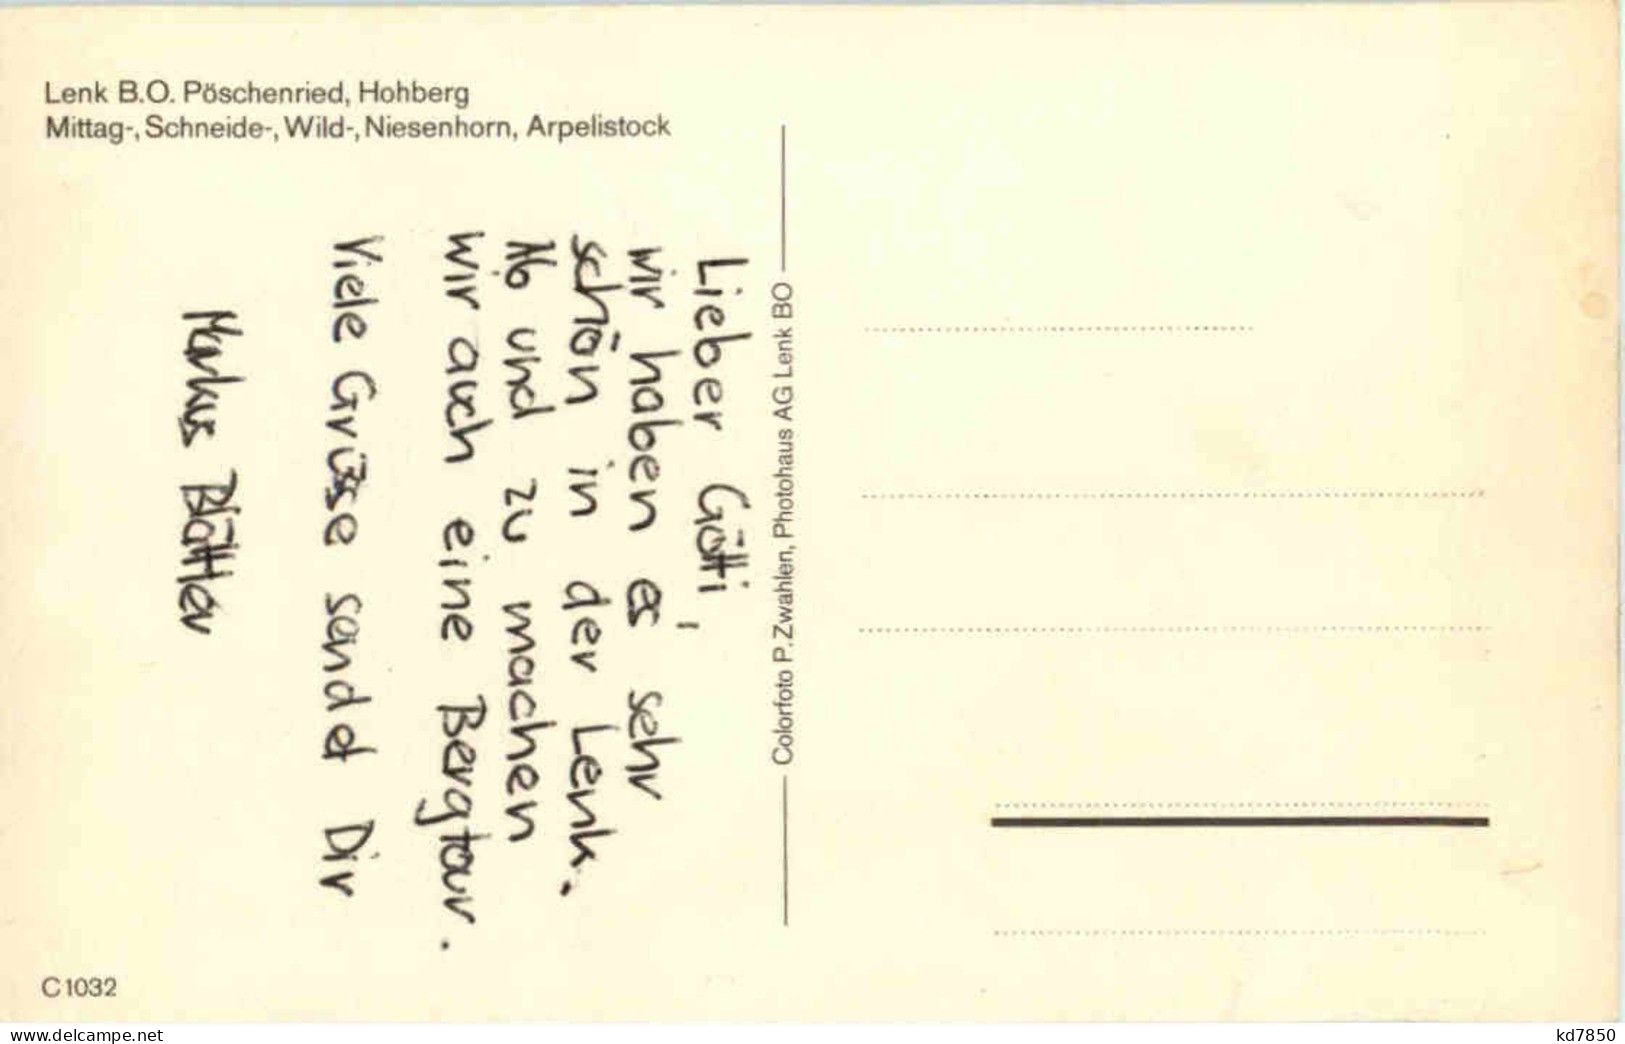 Lenk B.O. Pöschenried, Hohberg
Mittag-, Schneide-, Wild-, Niesenhorn, Arpelistock
Lieber Götti,
wir haben es sehr
schön in der Lenk.
Ab und zu machen
wir auch eine Bergtour.
Viele Grüsse sandet Dir
Markus Blättler
Colorfoto P. Zwahlen, Photohaus AG Lenk BO
C1032
www.delcampe.net
kd7850